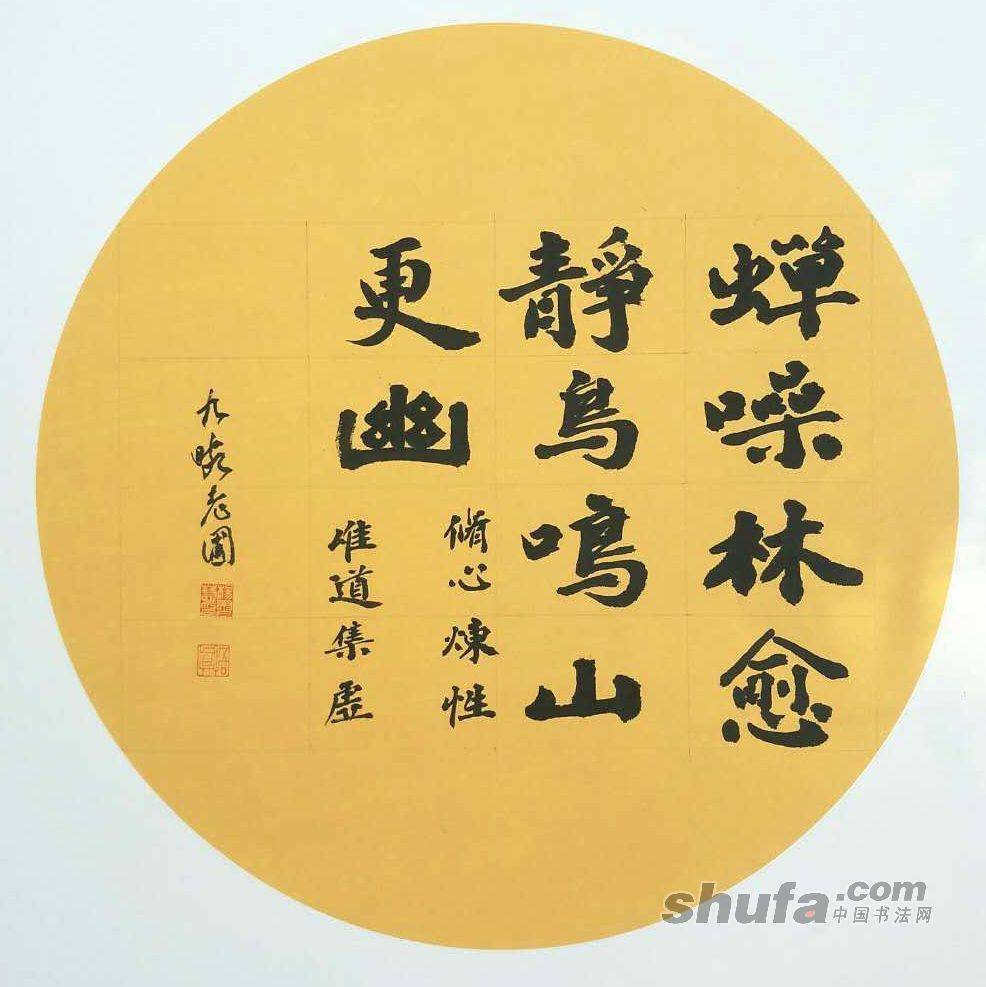 蝉噪林愈
靜鳥鳴山
更幽
脩心煉性
唯道集虛
九畹老圃
shufa.com
中国书法网